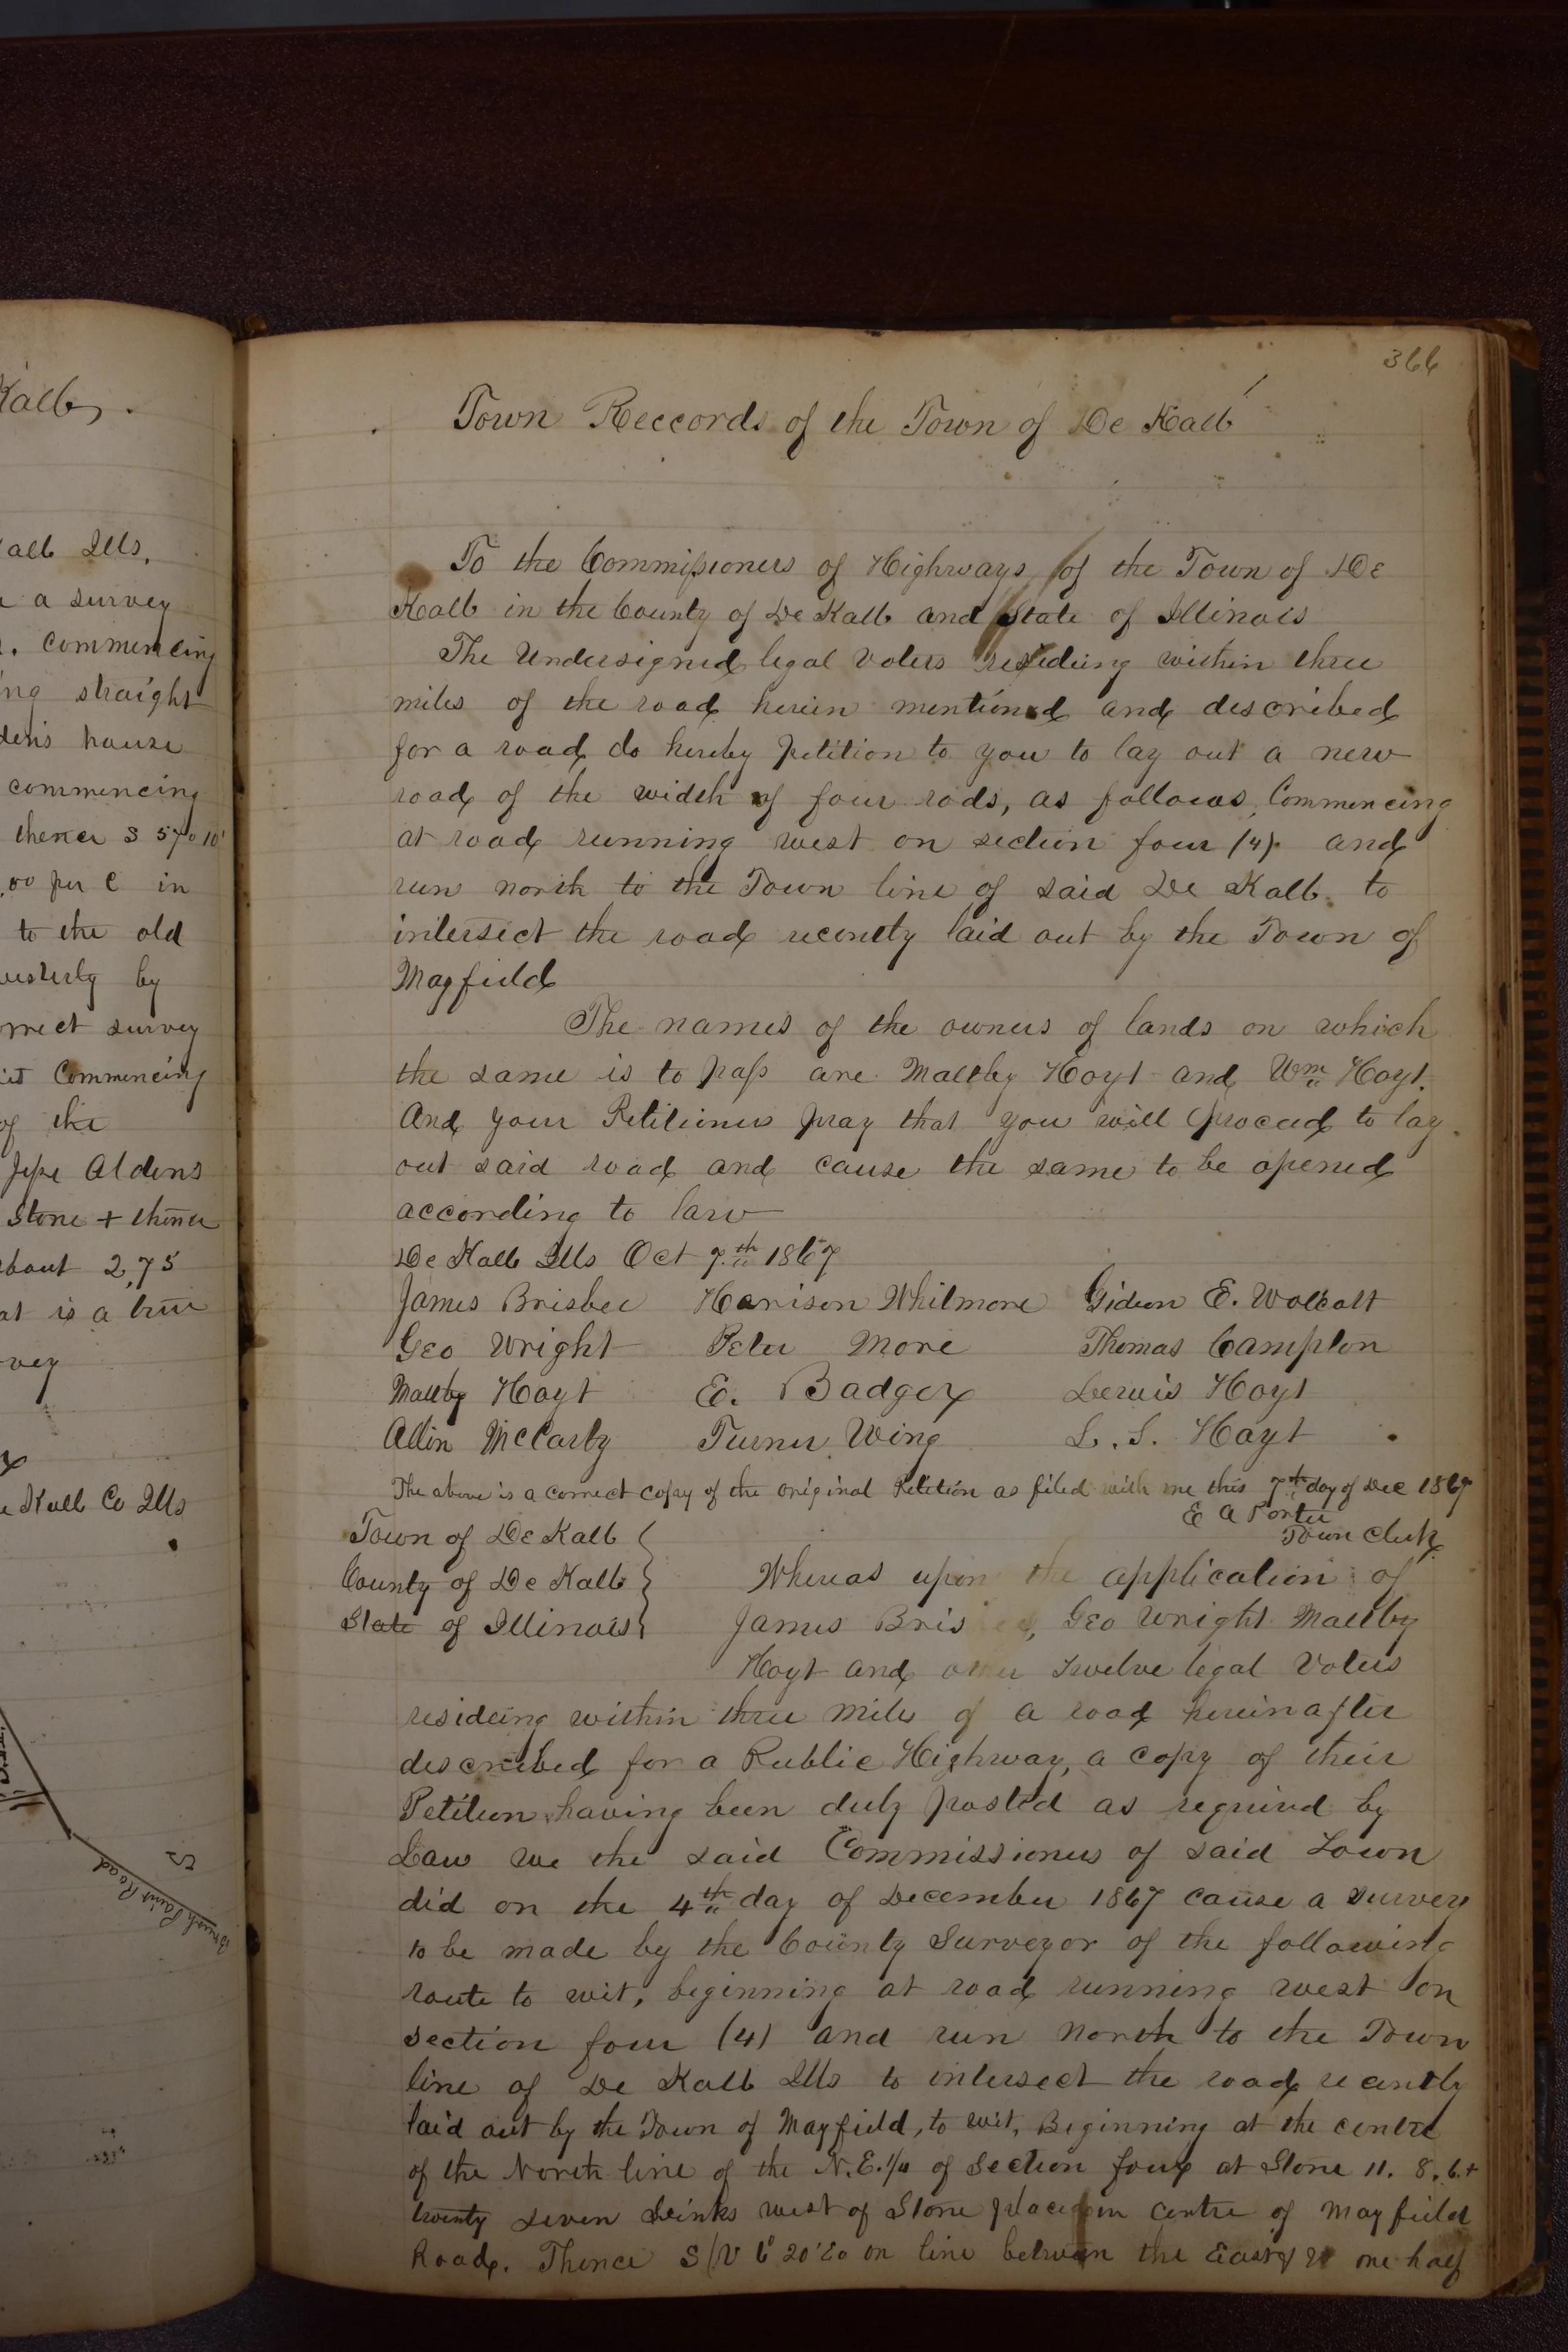 366
Town Reccords of the Town of De Kalb
To the Commissioners of Highways of the Town of De
Kalb in the County of De Kalb and State of Illinois
The Undersigned legal Voters resideing within three
miles of the road herein mentioned and described
for a road do hereby petition to you to lay out a new
road of the width of four rods, as follows, Commencing
at road running west on section four (4) and
run north to the Town line of said De Kalb to
intersect the road recently laid out by the Town of
Mayfield
The names of the owners of lands on which
the same is to pass are Maltby Hoyt and Wm Hoyt.
And your Petitioners pray that you will proceed to lay
out said road and cause the same to be opened
according to law
De Kalb Ills Oct 7th 1867
James Brisbee Harrison Whitmore Gideon E. Wolcott
Geo Wright Peter More Thomas Campton
Maltby Hoyt E. Badger Lewis Hoyt
Allin McCarty Turner Wing L. S. Hoyt
The above is a correct copy of the original Petition as filed with me this 7th day of Dec 1867
E A Porter
Town Clerk
Town of De Kalb
County of De Kalb
State of Illinois
Whereas upon the application of
James Bris, Geo Wright Maltby
Hoyt and other twelve legal Voters
resideing within three miles of a road hereinafter
described for a Public Highway, a copy of their
Petition having been duly posted as required by
Law we the said Commissioners of said Town
did on the 4th day of December 1867 cause a survey
to be made by the County Surveyor of the following
route to wit, beginning at road running west on
section four (4) and run north to the Town
line of De Kalb Ills to intersect the road recently
laid out by the Town of Mayfield, to wit, Beginning at the centre
of the North line of the N.E. 1/4 of Section four at Stone 11. 8. 6. +
twenty seven Links west of Stone placed in centre of Mayfield
Road. Thence S 20' on line between the East one half
Kalb.
Kalb Ills.
a survey
commencing
straight
house
commencing
thence S 57° 10'
per C in
to the old
westerly by
correct survey
Commencing
of the
Jesse Aldens
Stone + thence
about 2,75
at is a true
Kalb Co Ills
Brush Point Road